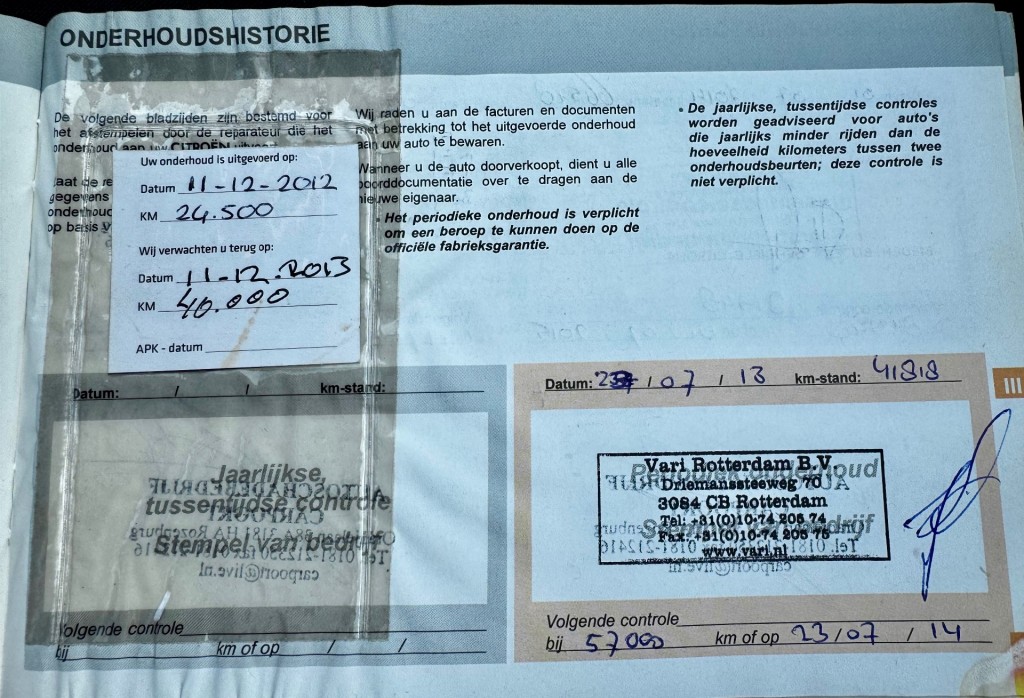 ONDERHOUDSHISTORIE
De volgende bladzijden zijn bestemd voor
het afstempelen door de reparateur die het
onderhoud aan uw CITROËN
Uw onderhoud is uitgevoerd op:
Datum 11-12-2012
KM 24.500
Wij verwachten u terug op:
Datum 11-12-2013
KM 40.000
APK - datum
gegevens
onderhoud
op basis
Wij raden u aan de facturen en documenten
met betrekking tot het uitgevoerde onderhoud
aan uw auto te bewaren.
Wanneer u de auto doorverkoopt, dient u alle
boorddocumentatie over te dragen aan de
nieuwe eigenaar.
Het periodieke onderhoud is verplicht
om een beroep te kunnen doen op de
officiële fabrieksgarantie.
• De jaarlijkse, tussentijdse controles
worden geadviseerd voor auto's
die jaarlijks minder rijden dan de
hoeveelheid kilometers tussen twee
onderhoudsbeurten; deze controle is
niet verplicht.
Datum: / / km-stand:
Jaarlijkse,
tussentijdse controle
Stempel van bedrijf
Volgende controle
bij km of op / /
Datum: 23 / 07 / 13 km-stand: 41818
III
Periodiek onderhoud
Stempel van bedrijf
Vari Rotterdam B.V.
Driemanssteeweg 70
3084 CB Rotterdam
Tel: +31(0)10-74 205 74
Fax: +31(0)10-74 205 75
www.vari.nl
Volgende controle
bij 57000 km of op 23/07 / 14